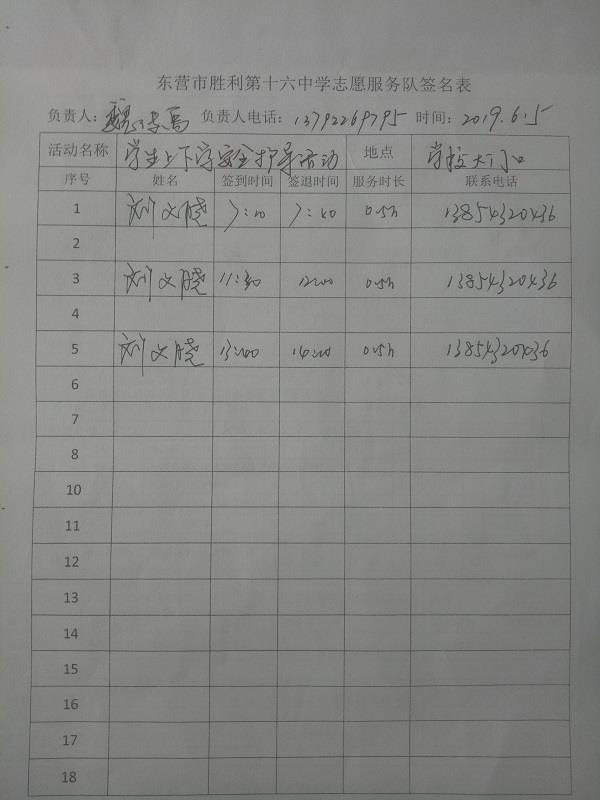 东营市胜利第十六中学志愿服务队签名表
负责人: 负责人电话: 13792269795 时间: 2019.6.5
活动名称 学生上下学安全护导活动 地点 学校大门口
序号 姓名 签到时间 签退时间 服务时长 联系电话
1 刘文晓 7:10 7:40 0.5h 13854320436
2
3 刘文晓 0.5h 13854320436
4
5 刘文晓 0.5h 13854320436
6
7
8
10
11
12
13
14
15
16
17
18